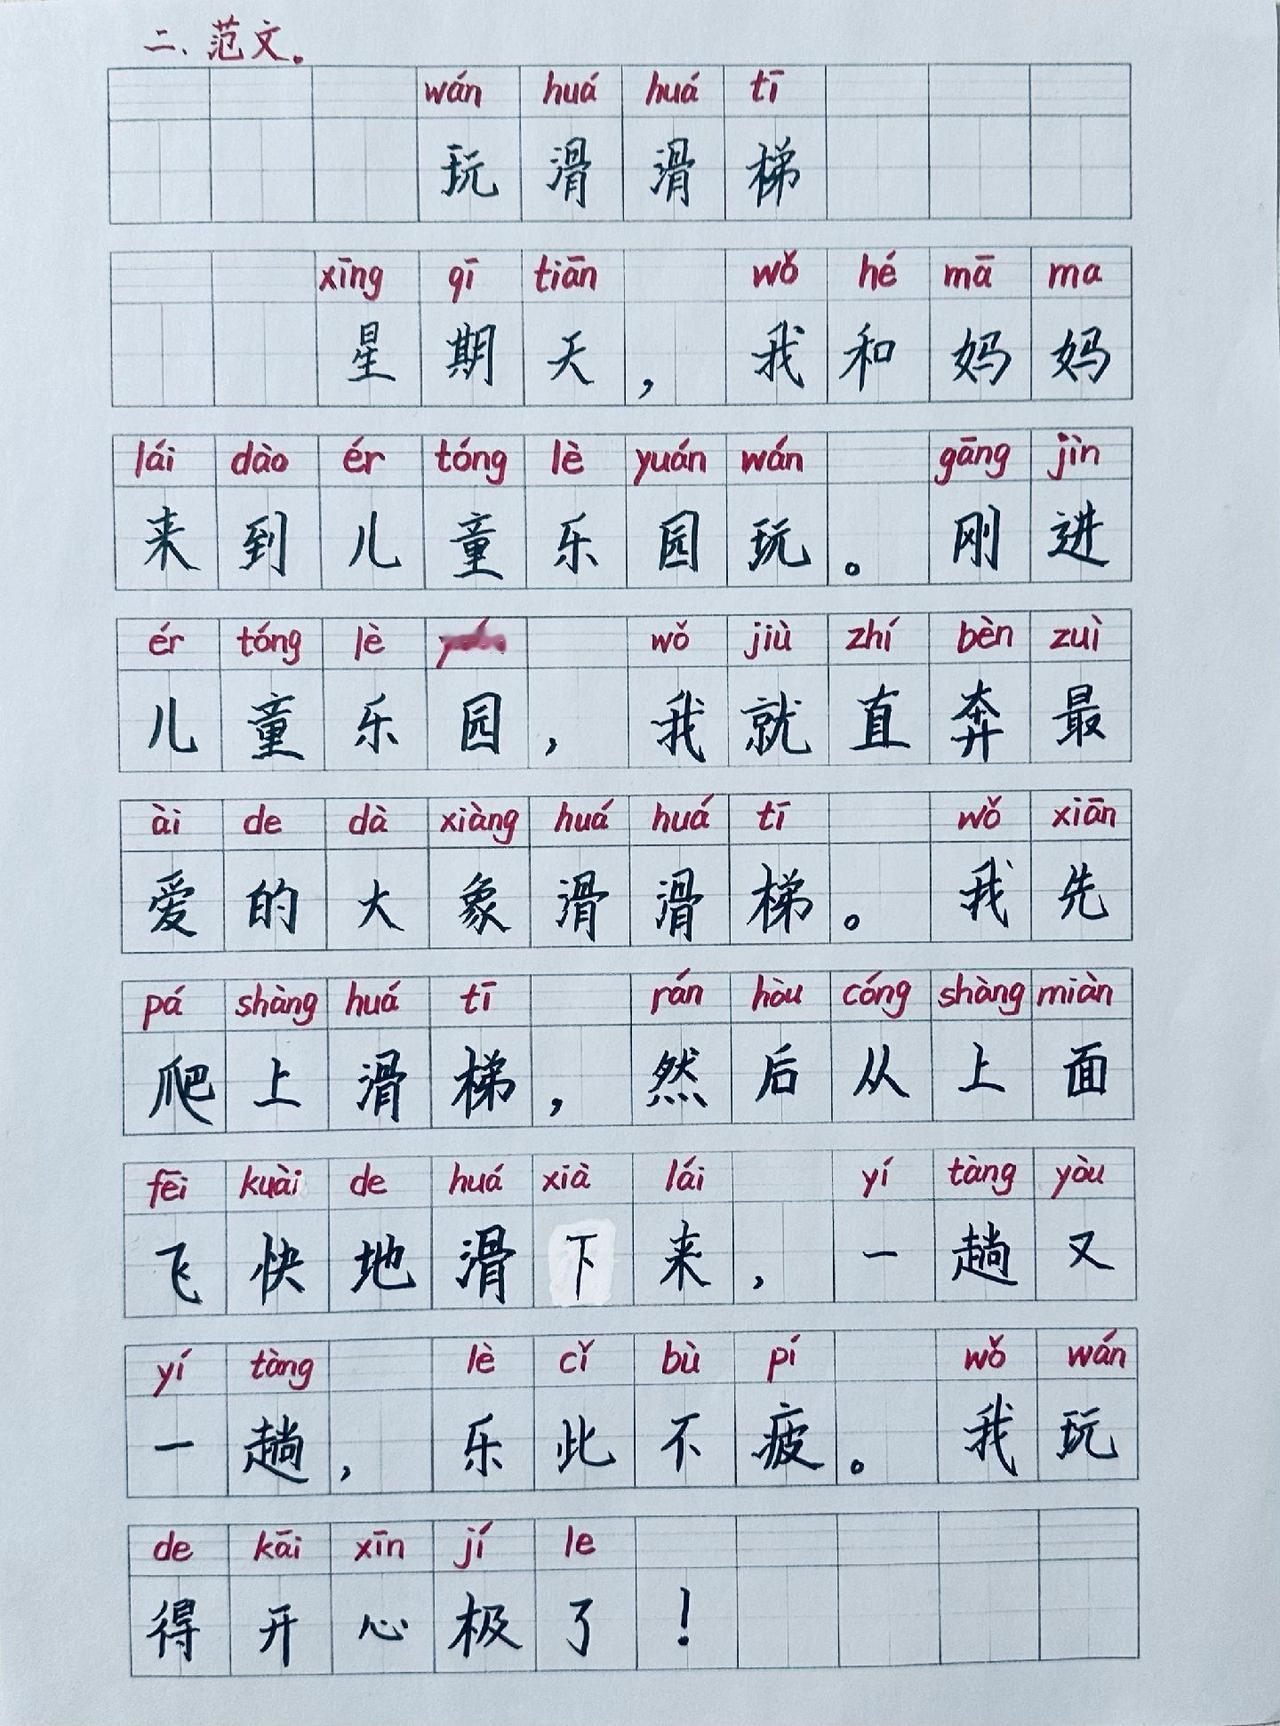 二、范文。
wán huá huá tī
玩滑滑梯
xīng qī tiān wǒ hé mā ma
星期天，我和妈妈
lái dào ér tóng lè yuán wán gāng jìn
来到儿童乐园玩。刚进
ér tóng lè wǒ jiù zhí bèn zuì
儿童乐园，我就直奔最
ài de dà xiàng huá huá tī wǒ xiān
爱的大象滑滑梯。我先
pá shàng huá tī rán hòu cóng shàng miàn
爬上滑梯，然后从上面
fēi kuài de huá xià lái yí tàng yòu
飞快地滑下来，一趟又
yí tàng lè cǐ bù pí wǒ wán
一趟，乐此不疲。我玩
de kāi xīn jí le
得开心极了！